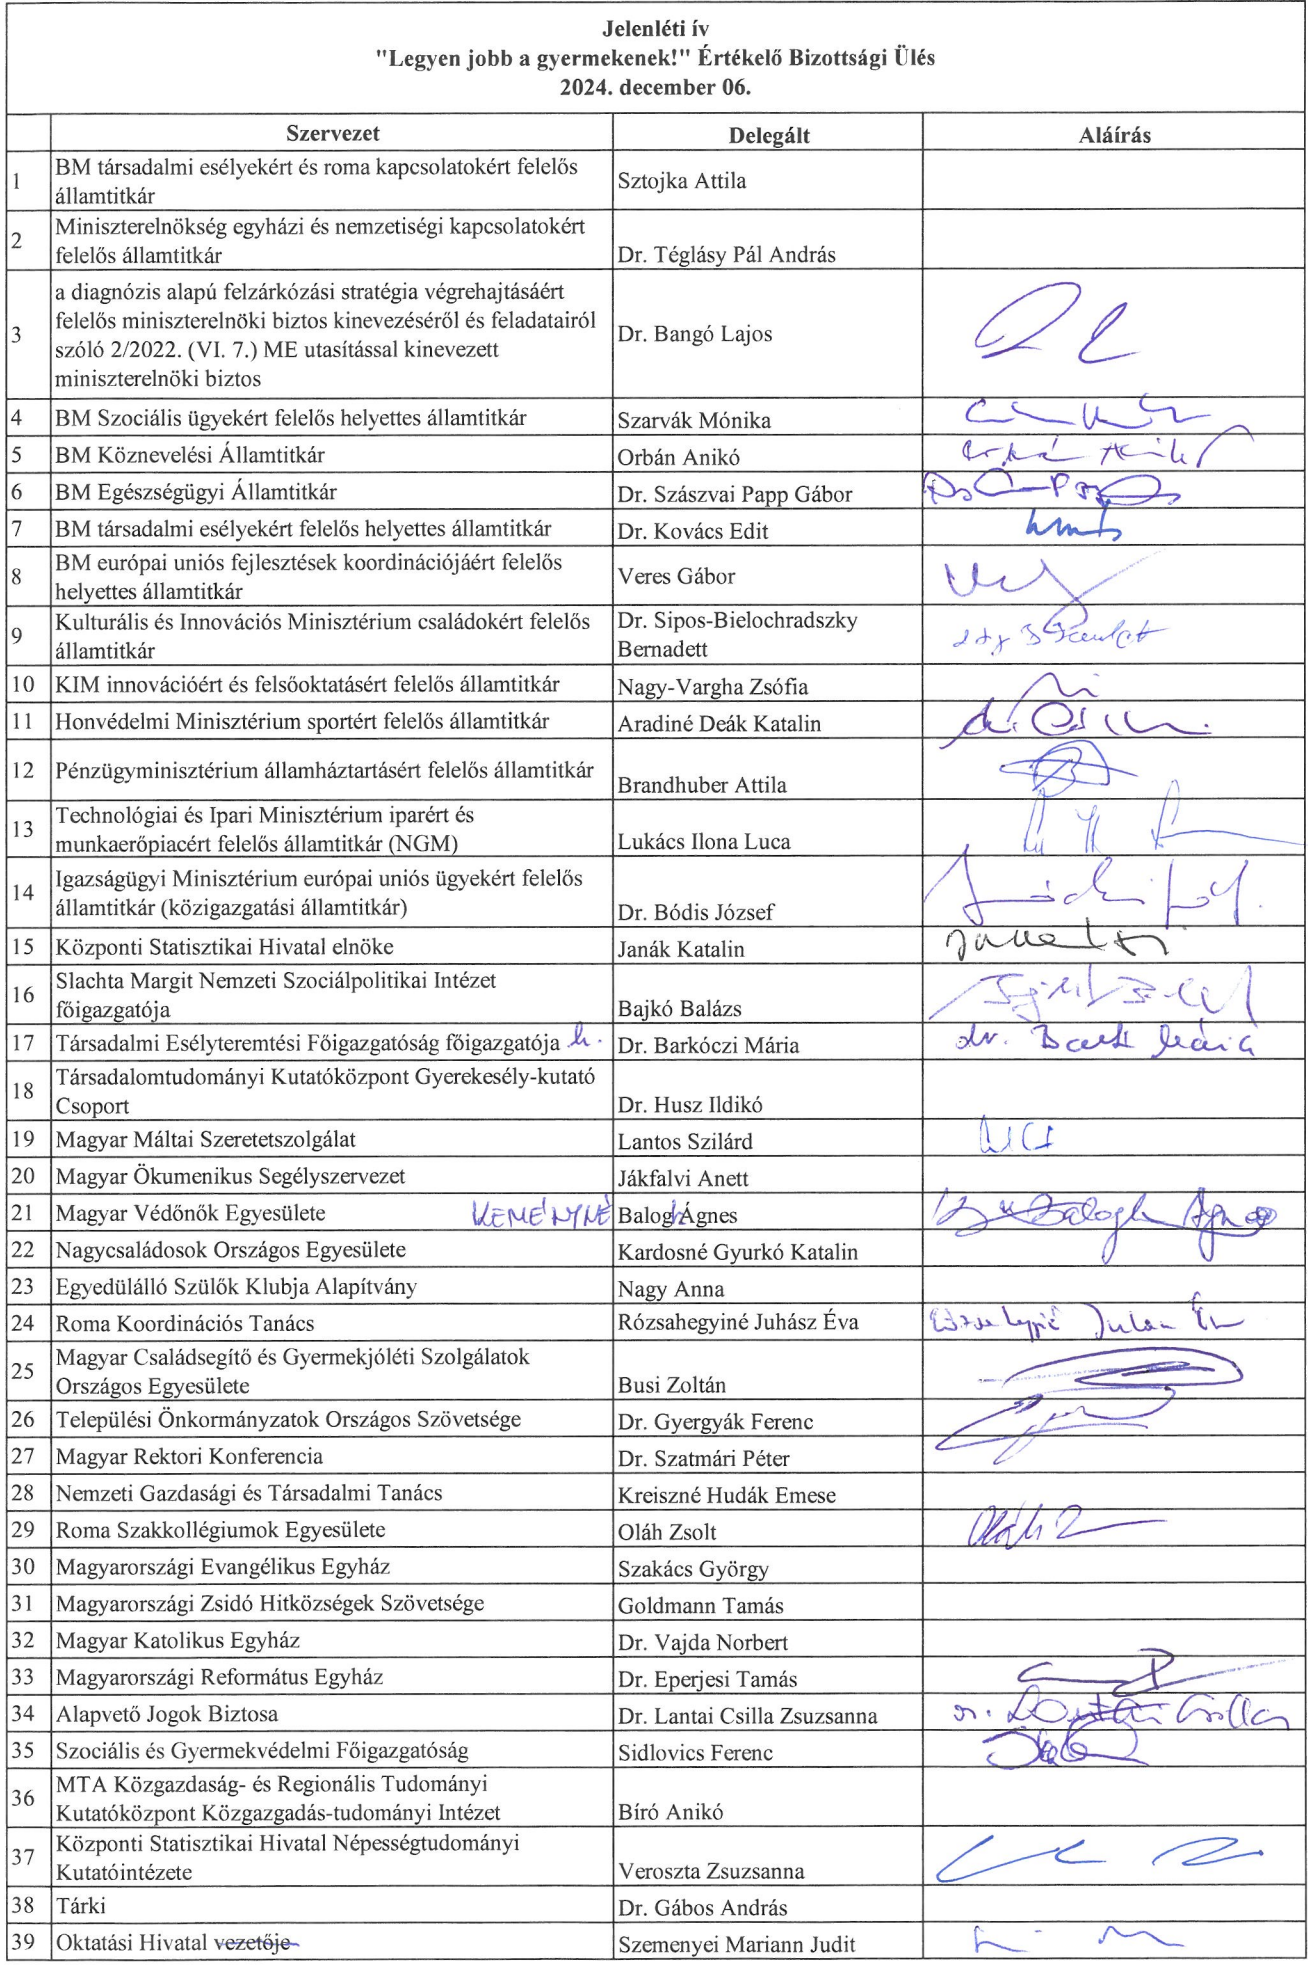 Jelenléti ív
"Legyen jobb a gyermekenek!" Értékelő Bizottsági Ülés
2024. december 06.
Szervezet Delegált Aláírás
1 BM társadalmi esélyekért és roma kapcsolatokért felelős
államtitkár Sztojka Attila
2 Miniszterelnökség egyházi és nemzetiségi kapcsolatokért
felelős államtitkár Dr. Téglásy Pál András
a diagnózis alapú felzárkózási stratégia végrehajtásáért
felelős miniszterelnöki biztos kinevezéséről és feladatairól
3 szóló 2/2022. (VI. 7.) ME utasítással kinevezett Dr. Bangó Lajos
miniszterelnöki biztos
4 BM Szociális ügyekért felelős helyettes államtitkár Szarvák Mónika
5 BM Köznevelési Államtitkár Orbán Anikó
6 BM Egészségügyi Államtitkár Dr. Szászvai Papp Gábor
7 BM társadalmi esélyekért felelős helyettes államtitkár Dr. Kovács Edit
8 BM európai uniós fejlesztések koordinációjáért felelős
helyettes államtitkár Veres Gábor
9 Kulturális és Innovációs Minisztérium családokért felelős Dr. Sipos-Bielochradszky
államtitkár Bernadett
10 KIM innovációért és felsőoktatásért felelős államtitkár Nagy-Vargha Zsófia
11 Honvédelmi Minisztérium sportért felelős államtitkár Aradiné Deák Katalin
12 Pénzügyminisztérium államháztartásért felelős államtitkár Brandhuber Attila
13 Technológiai és Ipari Minisztérium iparért és
munkaerőpiacért felelős államtitkár (NGM) Lukács Ilona Luca
14 Igazságügyi Minisztérium európai uniós ügyekért felelős
államtitkár (közigazgatási államtitkár) Dr. Bódis József
15 Központi Statisztikai Hivatal elnöke Janák Katalin
16 Slachta Margit Nemzeti Szociálpolitikai Intézet
főigazgatója Bajkó Balázs
17 Társadalmi Esélyteremtési Főigazgatóság főigazgatója h. Dr. Barkóczi Mária
18 Társadalomtudományi Kutatóközpont Gyerekesély-kutató
Csoport Dr. Husz Ildikó
19 Magyar Máltai Szeretetszolgálat Lantos Szilárd
20 Magyar Ökumenikus Segélyszervezet Jákfalvi Anett
21 Magyar Védőnők Egyesülete KEMÉNYNÉ Balogh Ágnes
22 Nagycsaládosok Országos Egyesülete Kardosné Gyurkó Katalin
23 Egyedülálló Szülők Klubja Alapítvány Nagy Anna
24 Roma Koordinációs Tanács Rózsahegyiné Juhász Éva
25 Magyar Családsegítő és Gyermekjóléti Szolgálatok
Országos Egyesülete Busi Zoltán
26 Települési Önkormányzatok Országos Szövetsége Dr. Gyergyák Ferenc
27 Magyar Rektori Konferencia Dr. Szatmári Péter
28 Nemzeti Gazdasági és Társadalmi Tanács Kreiszné Hudák Emese
29 Roma Szakkollégiumok Egyesülete Oláh Zsolt
30 Magyarországi Evangélikus Egyház Szakács György
31 Magyarországi Zsidó Hitközségek Szövetsége Goldmann Tamás
32 Magyar Katolikus Egyház Dr. Vajda Norbert
33 Magyarországi Református Egyház Dr. Eperjesi Tamás
34 Alapvető Jogok Biztosa Dr. Lantai Csilla Zsuzsanna
35 Szociális és Gyermekvédelmi Főigazgatóság Sidlovics Ferenc
36 MTA Közgazdaság- és Regionális Tudományi
Kutatóközpont Közgazgadás-tudományi Intézet Bíró Anikó
37 Központi Statisztikai Hivatal Népességtudományi
Kutatóintézete Veroszta Zsuzsanna
38 Tárki Dr. Gábos András
39 Oktatási Hivatal vezetője Szemenyei Mariann Judit